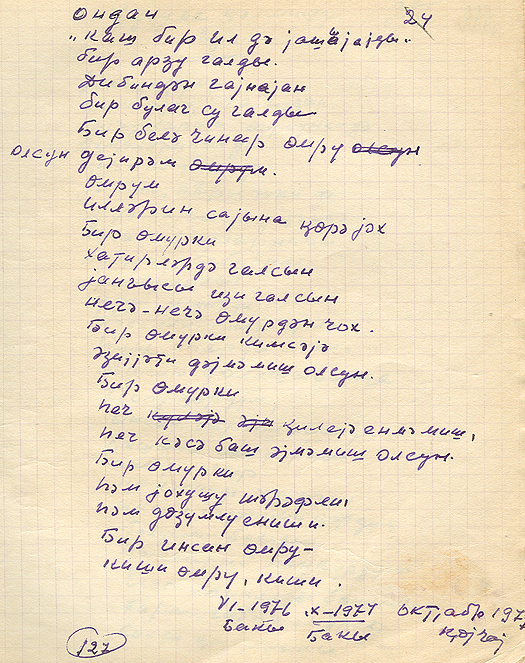 ондан 24
„Киш бир ил дә јашајајды“
бир арзу галды.
Дибиндән гајнајан
бир булаг су галды
Бир белә чинар өмрү олсун
олсун дејирәм өмрүм.
Өмрүм
илләрин сајына ҝөрә јох
Бир өмүрки
хатирләрдә галсын
јанғысы изи галсын
нечә-нечә өмүрдән чох.
Бир өмүрки кимсәјә
әзијјәти дәјмәмиш олсун.
Бир өмүрки
һеч ҝиләјә енмәмиш,
һеч кәсә баш әјмәмиш олсун.
Бир өмүрки
һәм јохушу шәрәфли,
һәм дөзүмлү ениши.
Бир инсан өмрү-
киши өмрү, киши.
VI-1976 X-1977 октјабр 197
Бакы Бакы Ҝөјчај
127